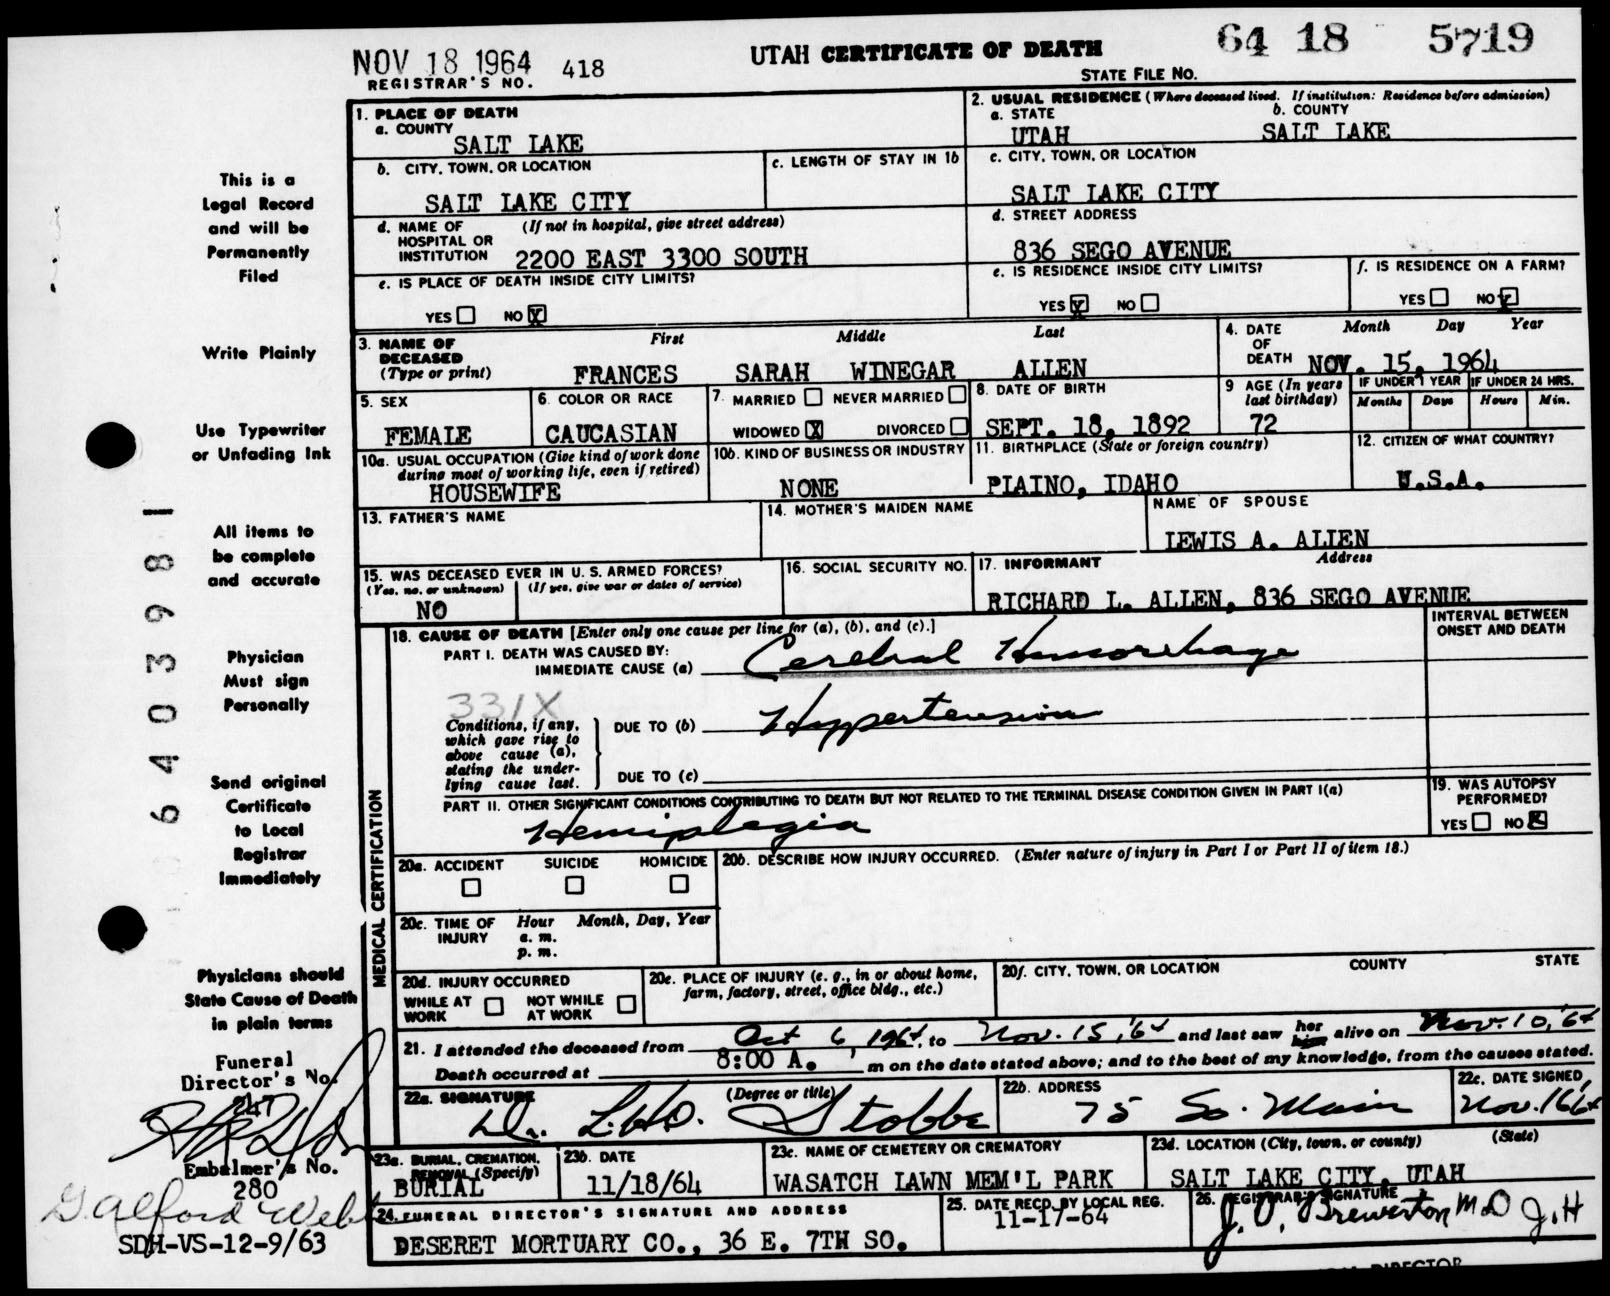 NOV 18 1964 418
REGISTRAR'S NO.
UTAH CERTIFICATE OF DEATH
64 18 5719
STATE FILE NO.
This is a
Legal Record
and will be
Permanently
Filed
Write Plainly
Use Typewriter
or Unfading Ink
All items to
be complete
and accurate
Physician
Must sign
Personally
Send original
Certificate
to Local
Registrar
Immediately
Physicians should
State Cause of Death
in plain terms
Funeral
Director's No.
247
Embalmer's No.
280
G. Alford Webb
SDH-VS-12-9/63
6403981
1. PLACE OF DEATH
a. COUNTY
SALT LAKE
2. USUAL RESIDENCE (Where deceased lived. If institution: Residence before admission)
a. STATE b. COUNTY
UTAH SALT LAKE
b. CITY, TOWN, OR LOCATION
SALT LAKE CITY
c. LENGTH OF STAY IN 1b
c. CITY, TOWN, OR LOCATION
SALT LAKE CITY
d. NAME OF (If not in hospital, give street address)
HOSPITAL OR
INSTITUTION 2200 EAST 3300 SOUTH
d. STREET ADDRESS
836 SEGO AVENUE
e. IS PLACE OF DEATH INSIDE CITY LIMITS?
YES NO X
e. IS RESIDENCE INSIDE CITY LIMITS?
YES X NO
f. IS RESIDENCE ON A FARM?
YES NO X
3. NAME OF First Middle Last
DECEASED
(Type or print) FRANCES SARAH WINEGAR ALLEN
4. DATE Month Day Year
OF
DEATH NOV. 15, 1964
5. SEX
FEMALE
6. COLOR OR RACE
CAUCASIAN
7. MARRIED NEVER MARRIED
WIDOWED X DIVORCED
8. DATE OF BIRTH
SEPT. 18, 1892
9 AGE (In years
last birthday)
72
IF UNDER 1 YEAR IF UNDER 24 HRS.
Months Days Hours Min.
10a. USUAL OCCUPATION (Give kind of work done
during most of working life, even if retired)
HOUSEWIFE
10b. KIND OF BUSINESS OR INDUSTRY
NONE
11. BIRTHPLACE (State or foreign country)
PLAINO, IDAHO
12. CITIZEN OF WHAT COUNTRY?
U.S.A.
13. FATHER'S NAME
14. MOTHER'S MAIDEN NAME
NAME OF SPOUSE
LEWIS A. ALLEN
15. WAS DECEASED EVER IN U. S. ARMED FORCES?
(Yes, no, or unknown) (If yes, give war or dates of service)
NO
16. SOCIAL SECURITY NO.
17. INFORMANT Address
RICHARD L. ALLEN, 836 SEGO AVENUE
MEDICAL CERTIFICATION
18. CAUSE OF DEATH [Enter only one cause per line for (a), (b), and (c).]
INTERVAL BETWEEN
ONSET AND DEATH
PART I. DEATH WAS CAUSED BY:
IMMEDIATE CAUSE (a) Cerebral Hemorrhage
331X
Conditions, if any,
which gave rise to
above cause (a),
stating the under-
lying cause last.
DUE TO (b) Hypertension
DUE TO (c)
PART II. OTHER SIGNIFICANT CONDITIONS CONTRIBUTING TO DEATH BUT NOT RELATED TO THE TERMINAL DISEASE CONDITION GIVEN IN PART I(a)
Hemiplegia
19. WAS AUTOPSY
PERFORMED?
YES NO X
20a. ACCIDENT SUICIDE HOMICIDE
20b. DESCRIBE HOW INJURY OCCURRED. (Enter nature of injury in Part I or Part II of item 18.)
20c. TIME OF Hour Month, Day, Year
INJURY a. m.
p. m.
20d. INJURY OCCURRED
WHILE AT NOT WHILE
WORK AT WORK
20e. PLACE OF INJURY (e. g., in or about home,
farm, factory, street, office bldg., etc.)
20f. CITY, TOWN, OR LOCATION COUNTY STATE
21. I attended the deceased from Oct 6, 1964, to Nov. 15, '64 and last saw her him alive on Nov. 10, '64
Death occurred at 8:00 A. m on the date stated above; and to the best of my knowledge, from the causes stated.
22a. SIGNATURE (Degree or title)
Dr. L.H.O. Stobbe
22b. ADDRESS
75 So. Main
22c. DATE SIGNED
Nov. 16 64
23a. BURIAL, CREMATION,
REMOVAL (Specify)
BURIAL
23b. DATE
11/18/64
23c. NAME OF CEMETERY OR CREMATORY
WASATCH LAWN MEM'L PARK
23d. LOCATION (City, town, or county) (State)
SALT LAKE CITY, UTAH
24. FUNERAL DIRECTOR'S SIGNATURE AND ADDRESS
DESERET MORTUARY CO., 36 E. 7TH SO.
25. DATE RECD. BY LOCAL REG.
11-17-64
26. REGISTRAR'S SIGNATURE
J. O. Brewerton MD J.H
DIRECTOR